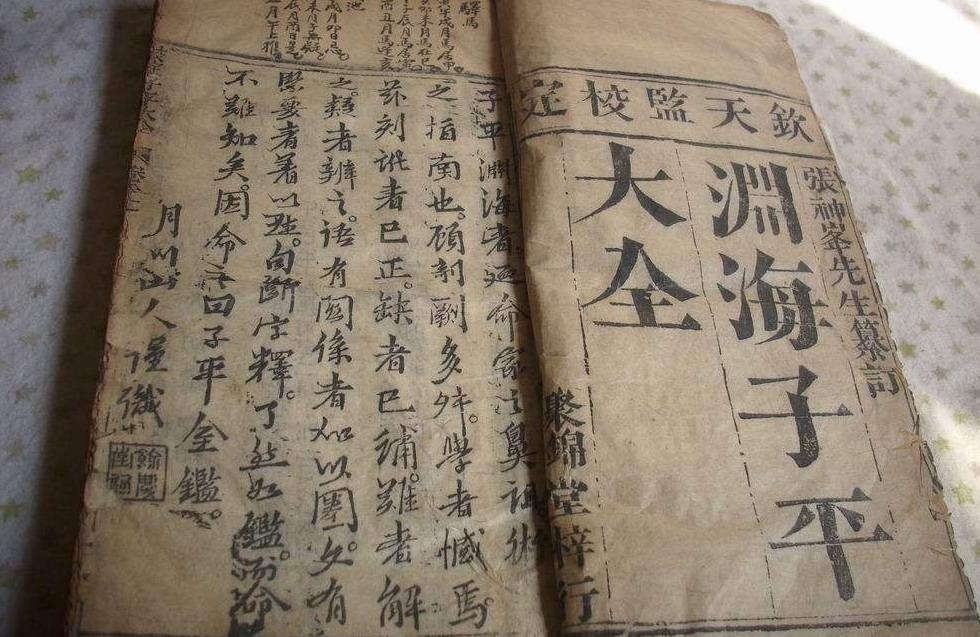 欽天監校定
張神峯先生纂訂
淵海子平
大全
聚錦堂梓行
驛馬
子平淵海者廼命家之鼻祖術
之指南也。顧剞劂多舛。學者憾焉。
茲刻訛者已正。缺者已補。難者解
之。類者辨之。語有関係者加以圈。文有
緊要者著以點。句斷字釋。了然如鑑。而命
不難知矣。因命之曰子平全鑑。
月川山人謹識